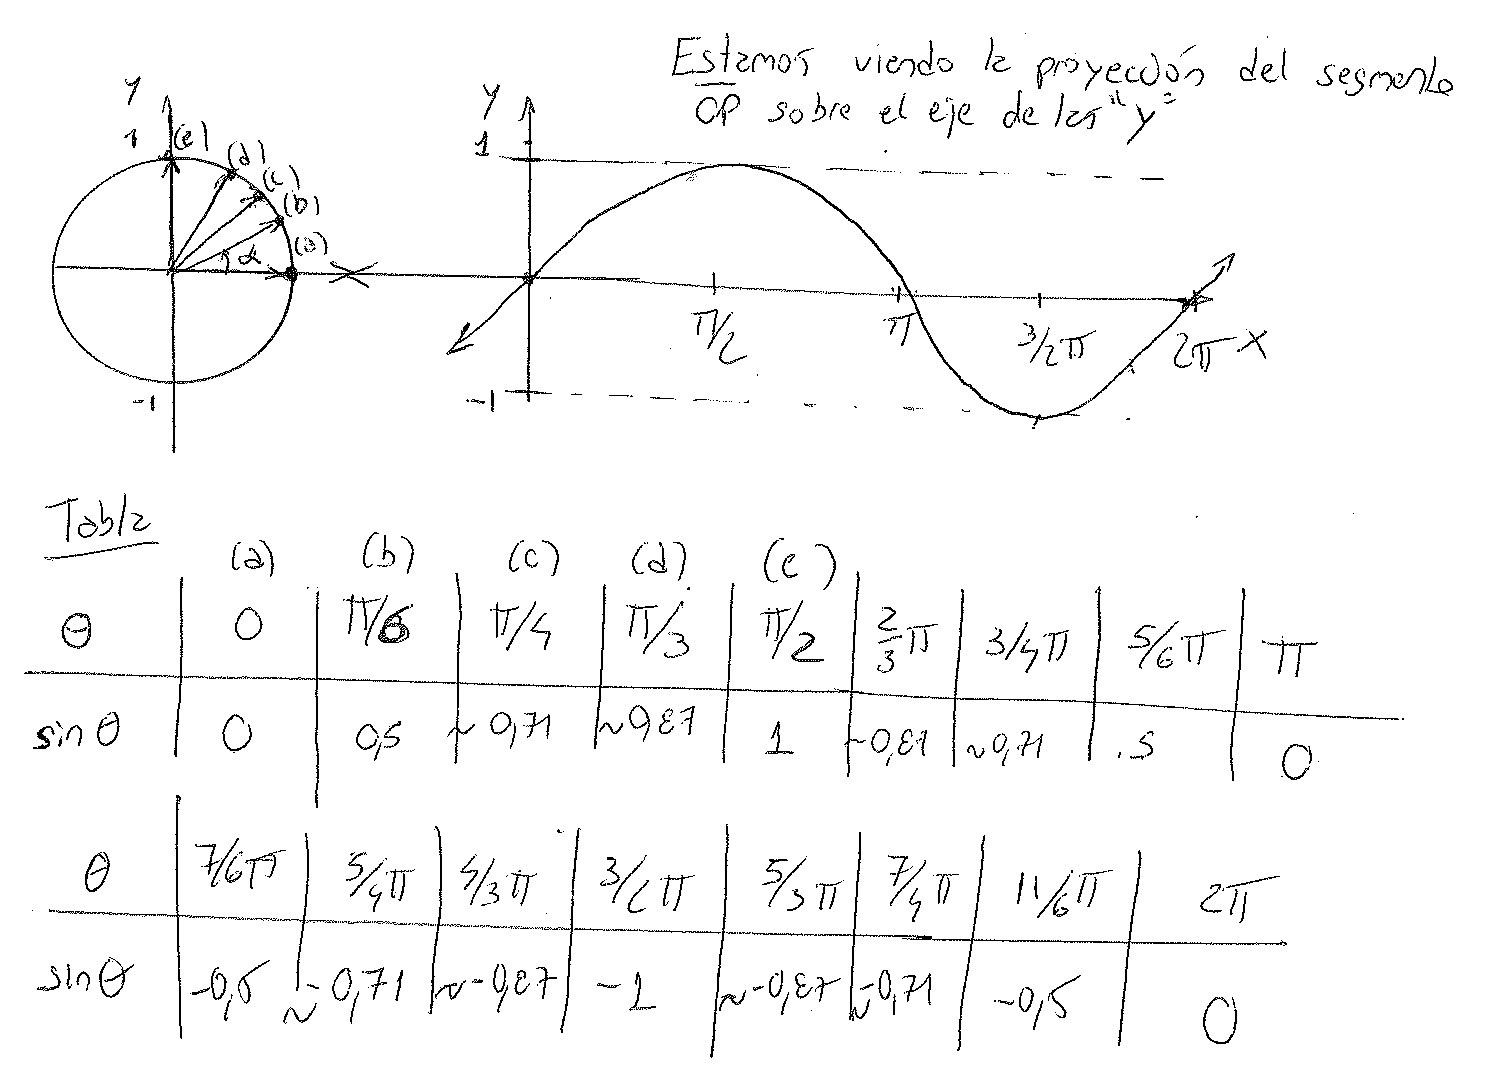 Estamos viendo la proyección del segmento
OP sobre el eje de las "y"
y
1 (e)
(d)
(c)
(b)
(a)
α
X
-1
y
1
-1
π/2
π
3/2π
2π X
Tabla
(a) (b) (c) (d) (e)
θ 0 π/6 π/4 π/3 π/2 2/3π 3/4π 5/6π π
sinθ 0 0,5 ~0,71 ~0,87 1 ~0,87 ~0,71 .5 0
θ 7/6π 5/4π 4/3π 3/2π 5/3π 7/4π 11/6π 2π
sinθ -0,5 ~-0,71 ~-0,87 -1 ~-0,87 ~-0,71 -0,5 0